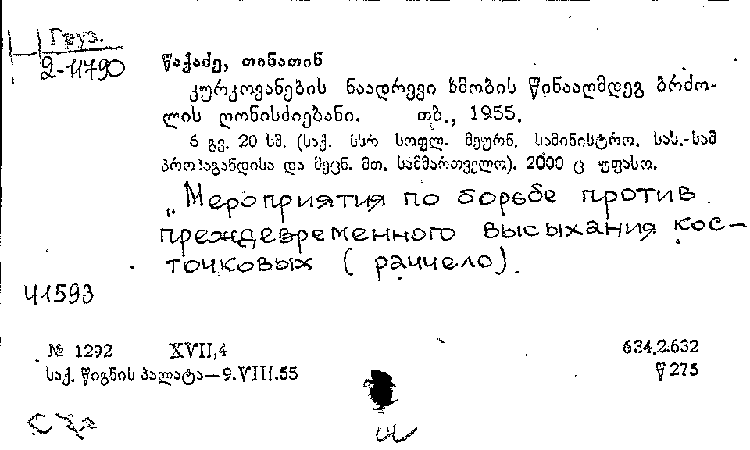 Груз.
2-11790
წაქაძე, თინათინ
კურკოვანების ნაადრევი ხმობის წინააღმდეგ ბრძო-
ლის ღონისძიებანი. თბ., 1955.
6 გვ. 20 სმ. (საქ. სსრ სოფლ. მეურნ. სამინისტრო. სას.-სამ
პროპაგანდისა და მეცნ. მთ. სამმართველო). 2000 ც უფასო.
„Мероприятия по борьбе против
преждевременного высыхания кос-
точковых ( рамчело).
Ч1593
№ 1292 XVII,4 634.2.632
საქ. წიგნის პალატა—9.VIII.55 წ 275